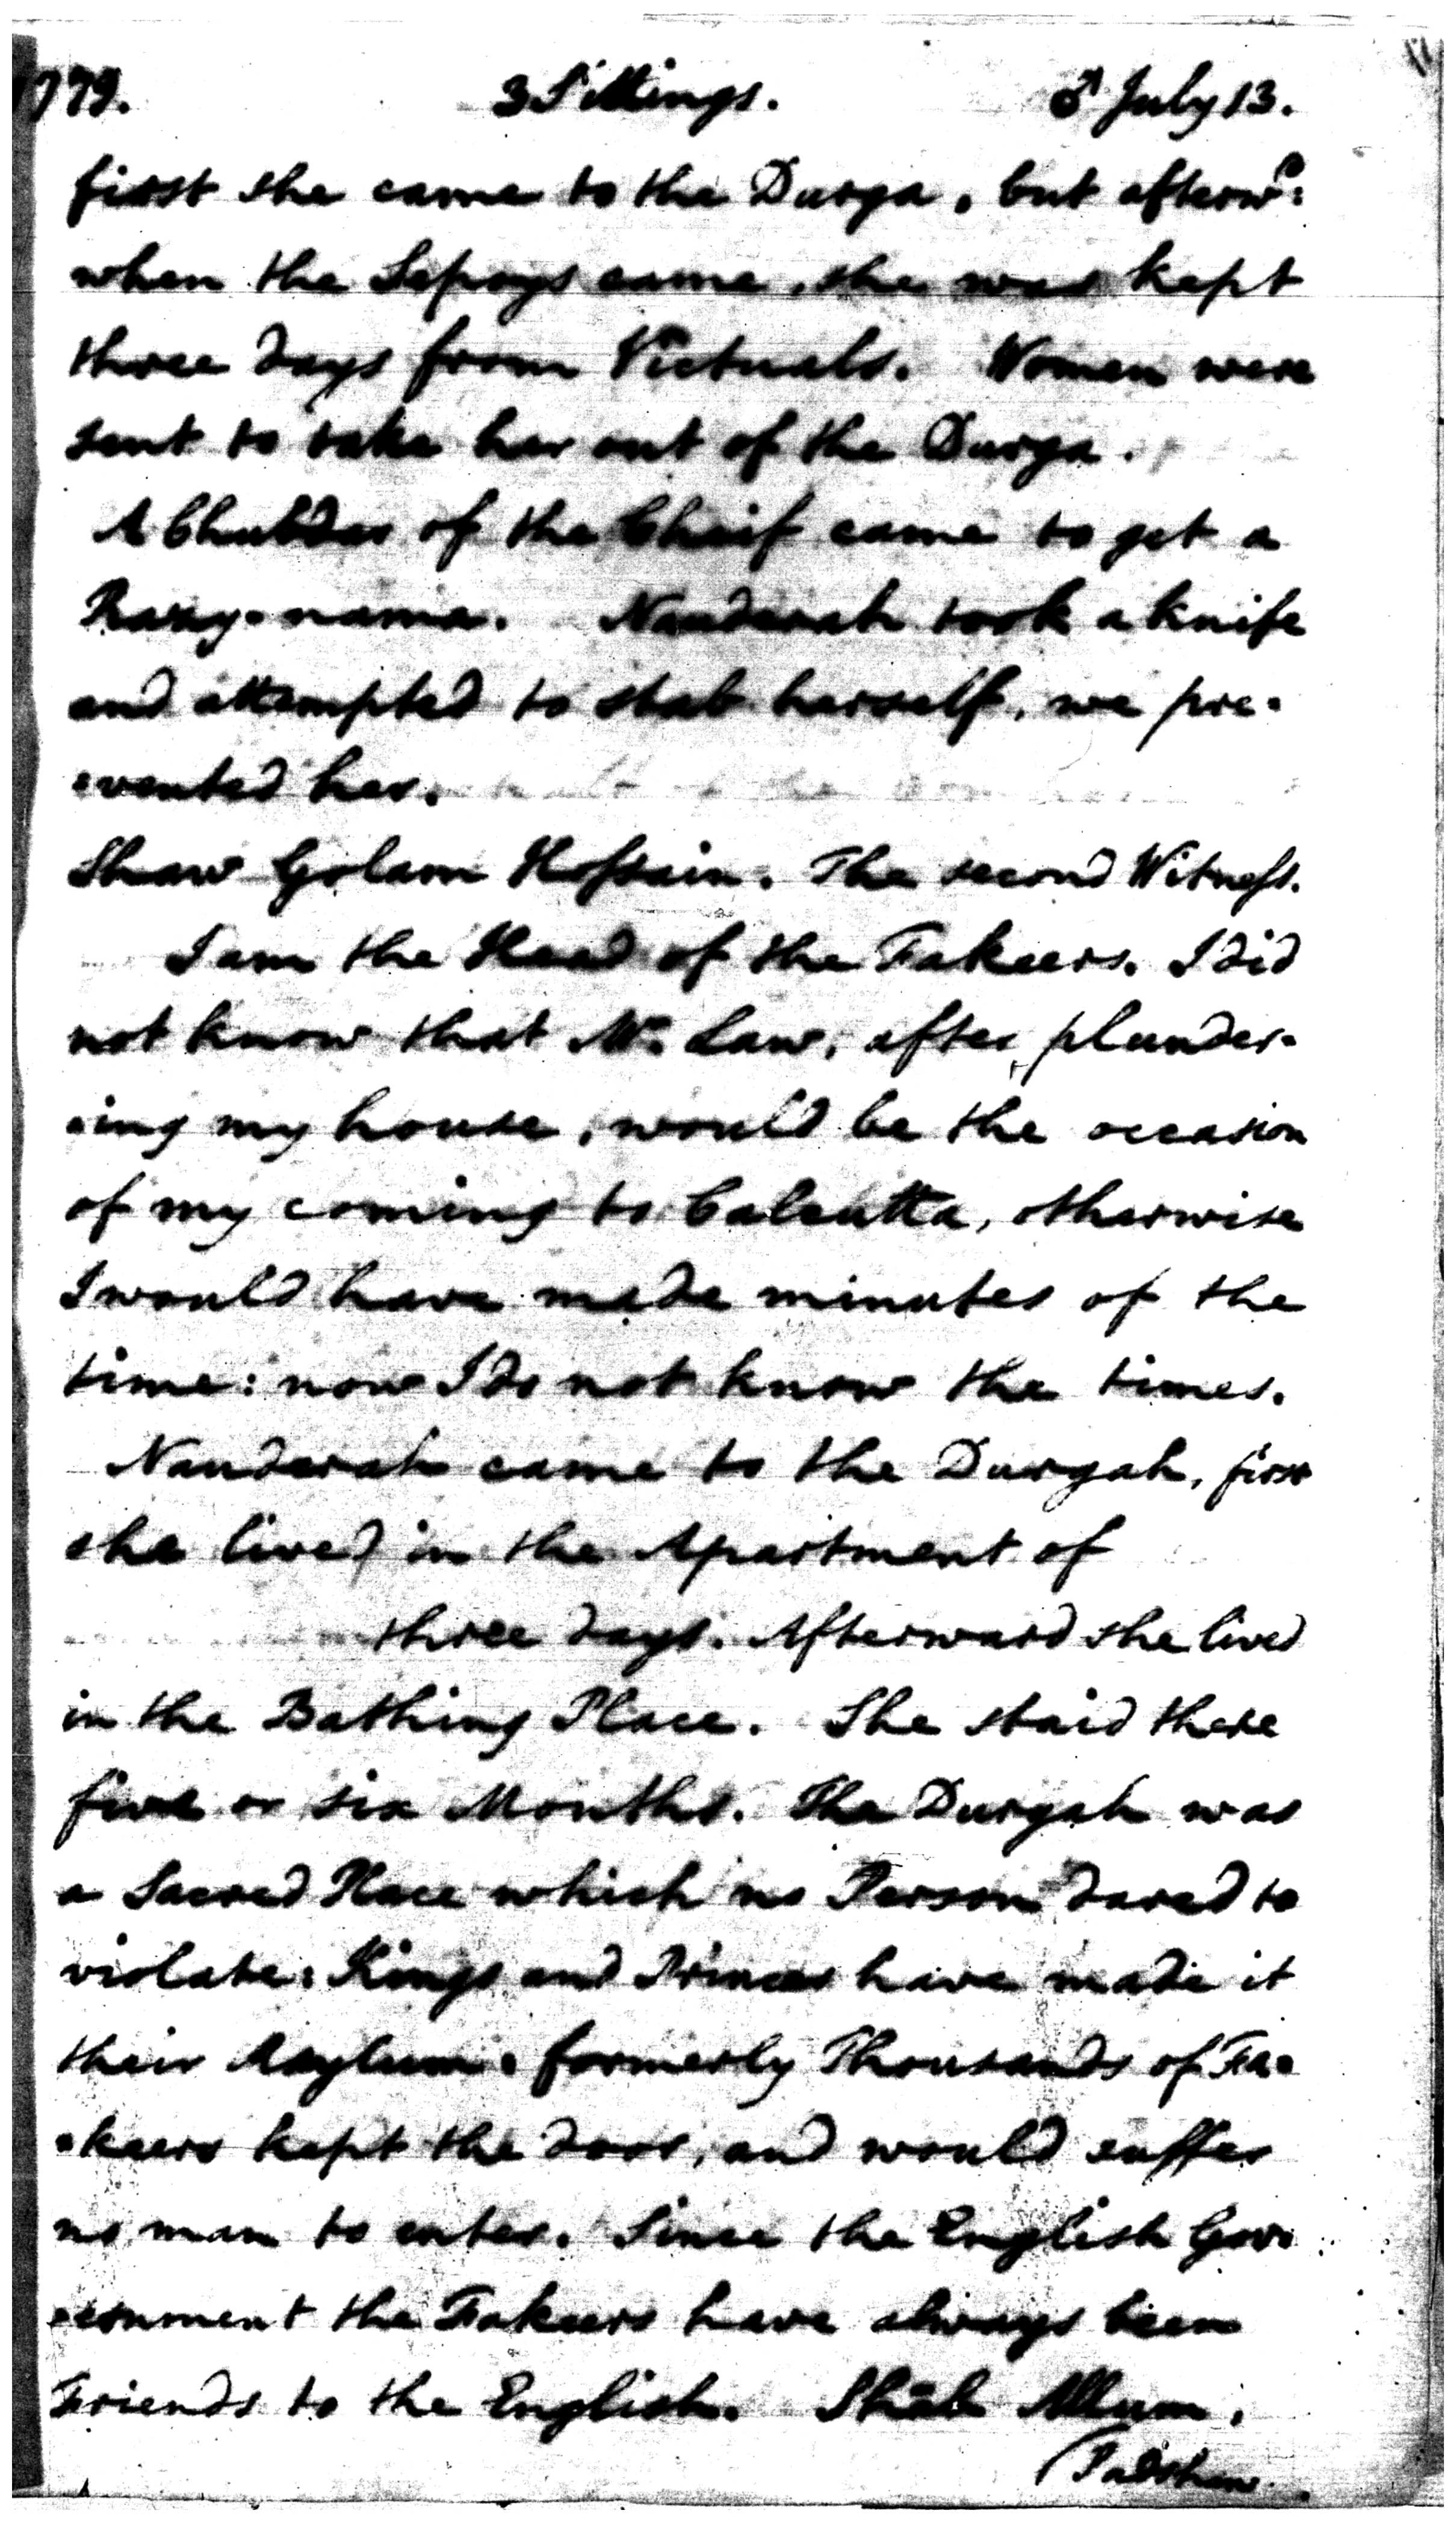 1779. 3 Sittings. ♂ July 13.
first she came to the Durga, but afterwᵈ:
when the Sepoys came, she was kept
three days from Victuals. Women were
sent to take her out of the Durga.
A Chubdar of the Cheif came to get a
Razy-nama. Nauderah took a knife
and attempted to stab herself, we pre-
-vented her.
Shaw Golam Hossain. The second Witness.
I am the Head of the Fakeers. I did
not know that Mr. Law, after plunder-
-ing my house, would be the occasion
of my coming to Calcutta, otherwise
I would have made minutes of the
time: now I do not know the times.
Nauderah came to the Durgah, first
she lived in the Apartment of
three days. Afterward she lived
in the Bathing Place. She staid there
five or six Months. The Durgah was
a Sacred Place which no Person dared to
violate: Kings and Princes have made it
their Asylum: formerly Thousands of Fa-
-keers kept the door, and would suffer
no man to enter. Since the English Gov-
-ernment the Fakeers have always been
Friends to the English. Shah Allum,
(Padshaw.